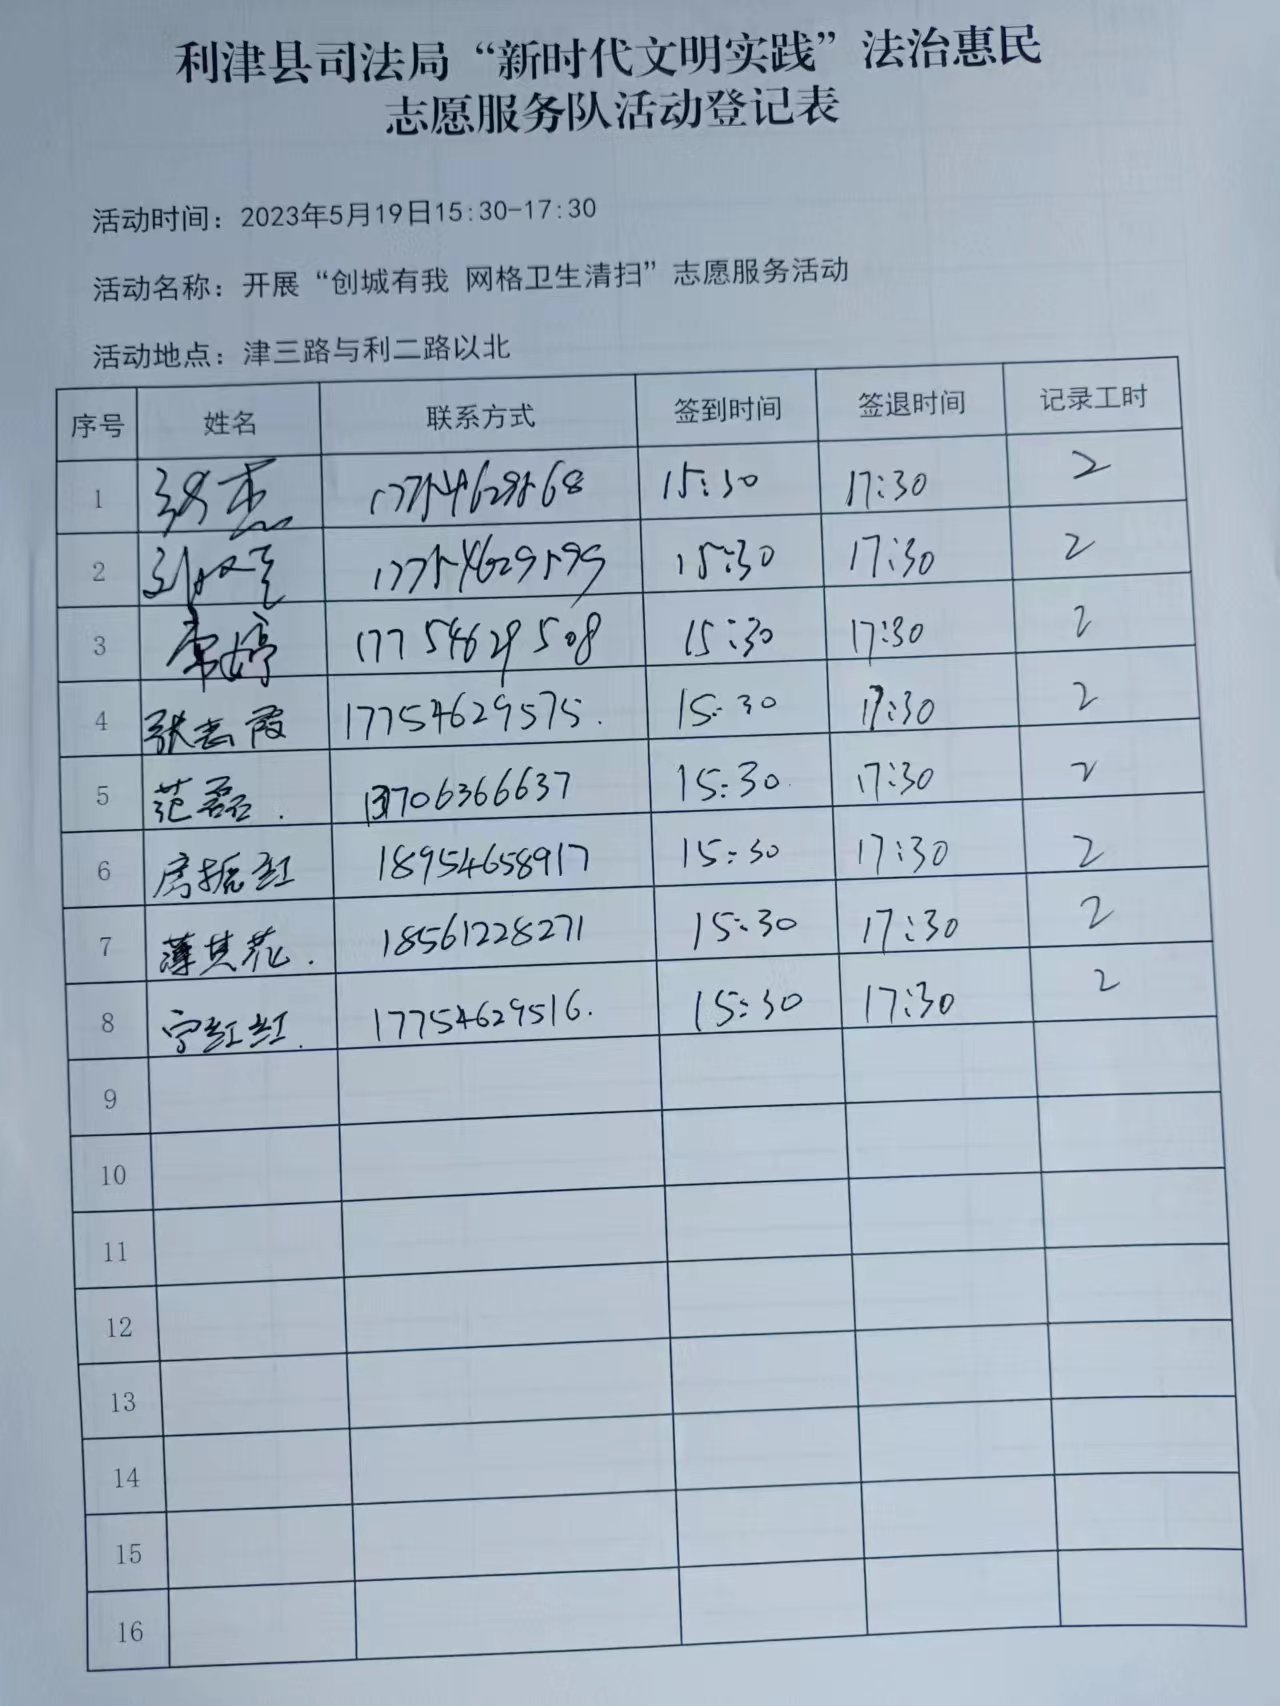 利津县司法局“新时代文明实践”法治惠民
志愿服务队活动登记表
活动时间：2023年5月19日15:30-17:30
活动名称：开展“创城有我 网格卫生清扫”志愿服务活动
活动地点：津三路与利二路以北
序号 姓名 联系方式 签到时间 签退时间 记录工时
1 17754629568 15:30 17:30 2
2 17754629599 15:30 17:30 2
3 常婷 17754629508 15:30 17:30 2
4 张志霞 17754629575. 15:30 17:30 2
5 范磊. 13706366637 15:30. 17:30 2
6 房振红 18954658917 15:30 17:30 2
7 薄其花. 18561228271 15:30 17:30 2
8 宁红红. 17754629516. 15:30 17:30 2
9
10
11
12
13
14
15
16